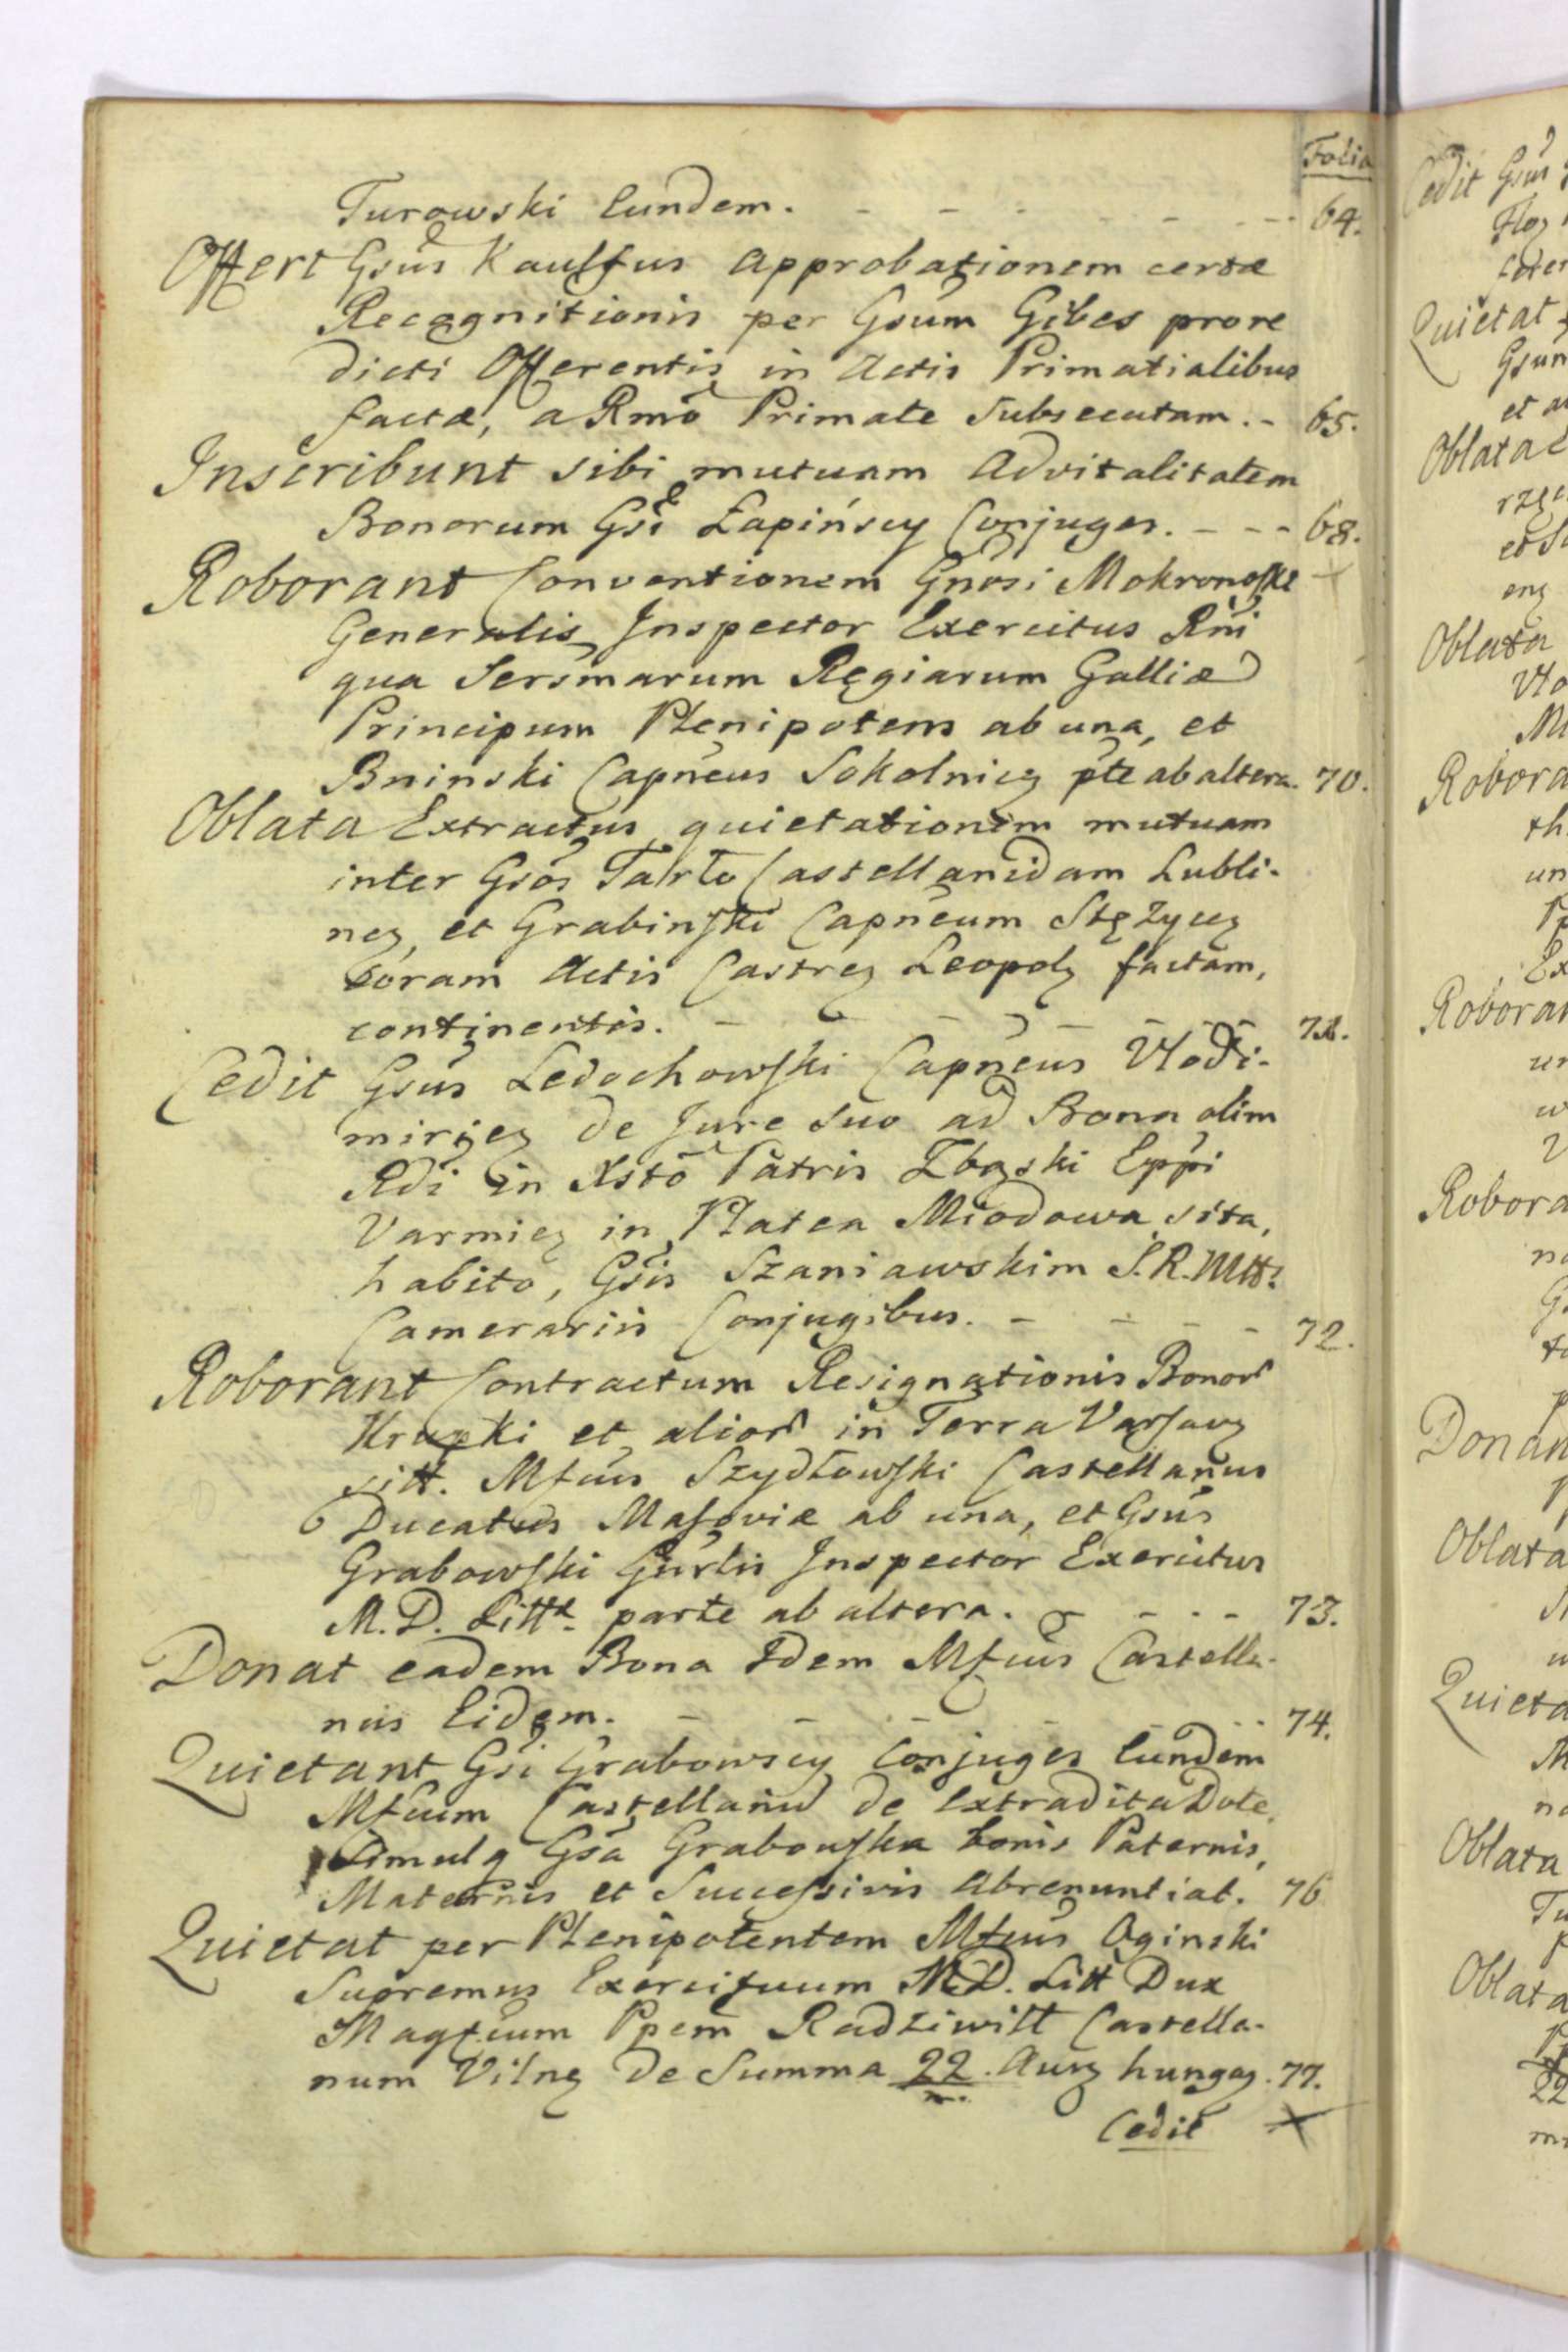 Folia
Turowski Eundem. - - - - - - 64.
Offert Gsus Kaulfus Approbationem certæ
Recognitionis per Gsum Gibes prore
dicti Offerentis in Actis Primatialibus
factæ, a Rmo Primate Subsecutam. - 65.
Inscribunt sibi mutuam Advitalitatem
Bonorum Gsi Łapińscy Conjuges. - - - 68.
Roborant Conventionem Gnosi Mokronoski
Generalis Inspector Exercitus Rni
qua Sersmarum Regiarum Galliæ
Principum Plenipotens ab una, et
Bninski Capneus Sokolnicz pte ab altera. 70.
Oblata Extractus quietationem mutuam
inter Gsos Tarło Castellanidam Lubli-
nez, et Grabinski Capneum Stężycez
coram Actis Castrez Leopolz factam,
continentis. - - - - - - 71.
Cedit Gsus Ledochowski Capneus Vłodi-
mirjez de Jure suo ad Bona olim
Rdi in Xsto Patris Zbąski Eppi
Varmiez in Platea Miodowa sita,
habito, Gsis Szaniawskim S.R.Mtt:
Camerariis Conjugibus. - - - - 72.
Roborant Contractum Resignationis Bonor
Krupki et alior in Terra Varsavz
sitt. Mfcus Szydłowski Castellanus
Ducatus Masoviæ ab una, et Gsus
Grabowski Gnrlis Inspector Exercitus
M.D. Litt. parte ab altera. - - - - 73.
Donat eadem Bona Idem Mfcus Castella-
nus Eidem. - - - - - - 74.
Quietant Gsi Grabowscy Conjuges Eundem
Mfcum Castellanum de Extradita Dote
Simulq Gsa Grabowska bonis Paternis,
Maternis et Successivis Abrenuntiat. 76
Quietat per Plenipotentem Mfcus Oginski
Supremus Exercituum M.D. Litt Dux
Magfcum Ppem Radziwiłł Castella-
num Vilnez de Summa 22/m. Aurz hungaz. 77.
Cedit